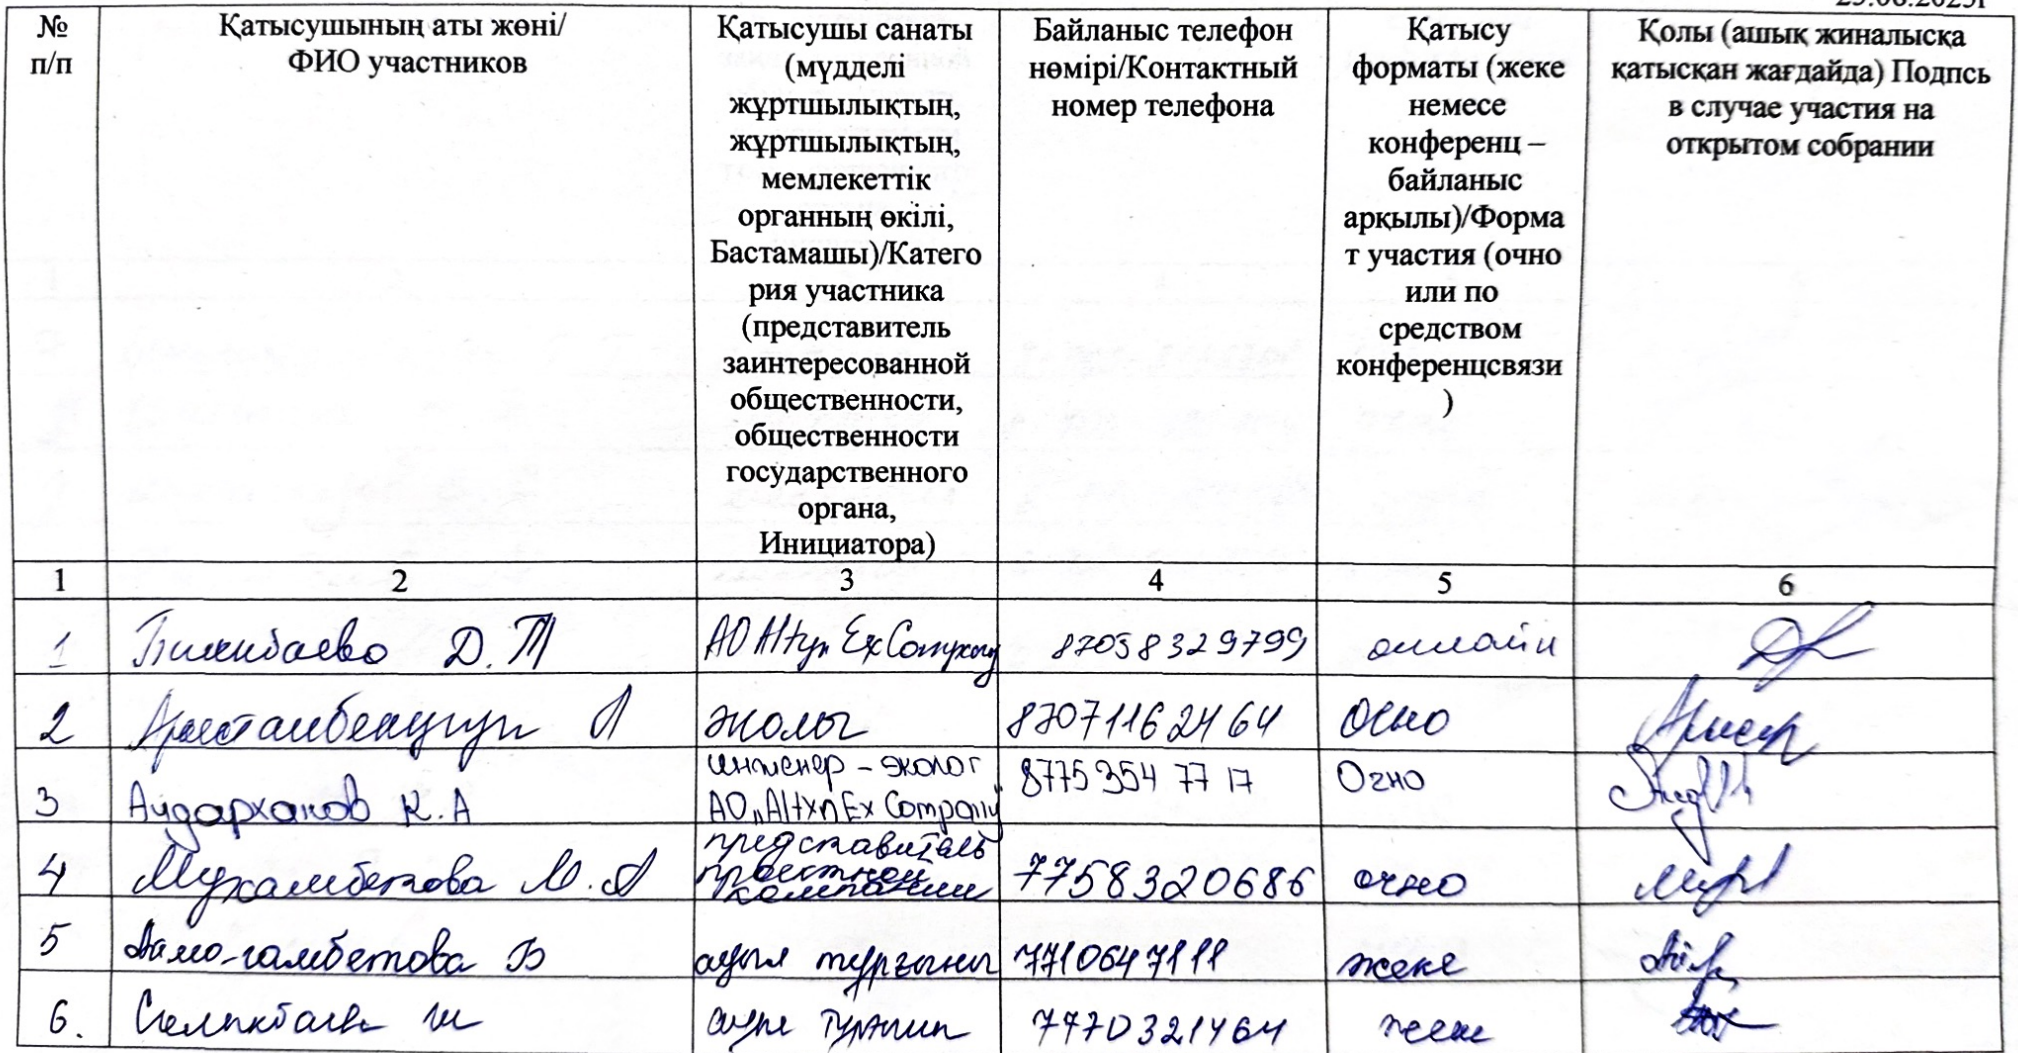 № п/п
Қатысушының аты жөні/
ФИО участников
Қатысушы санаты
(мүдделі
жұртшылықтың,
жұртшылықтың,
мемлекеттік
органның өкілі,
Бастамашы)/Катего
рия участника
(представитель
заинтересованной
общественности,
общественности
государственного
органа,
Инициатора)
Байланыс телефон
нөмірі/Контактный
номер телефона
Қатысу
форматы (жеке
немесе
конференц –
байланыс
арқылы)/Форма
т участия (очно
или по
средством
конференцсвязи
)
Қолы (ашық жиналысқа
қатысқан жағдайда) Подпсь
в случае участия на
открытом собрании
1 2 3 4 5 6
1 Д.Т АО Altyn Ex Company 87058329799 онлайн
2 А 87071162464 Очно
3 Айдарханов К.А инженер – эколог АО „Altyn Ex Company" 8775 354 77 17 Очно
4 Мухамбетова М.А представитель проектной компании 7758320686 очно
5 Б ауыл тұрғыны 7710647111 жеке
6. Ш ауыл 7770321464 жеке